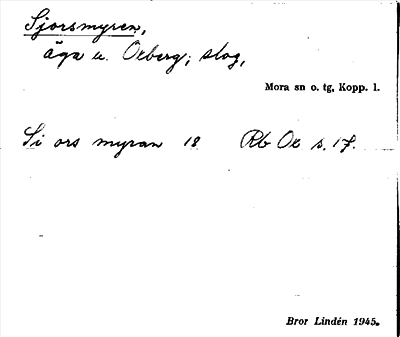 Sjorsmyren,
äga u. Orberg; slog,
Mora sn o. tg, Kopp. l.
Si ors myran 18 Rb Or s. 17.
Bror Lindén 1945.